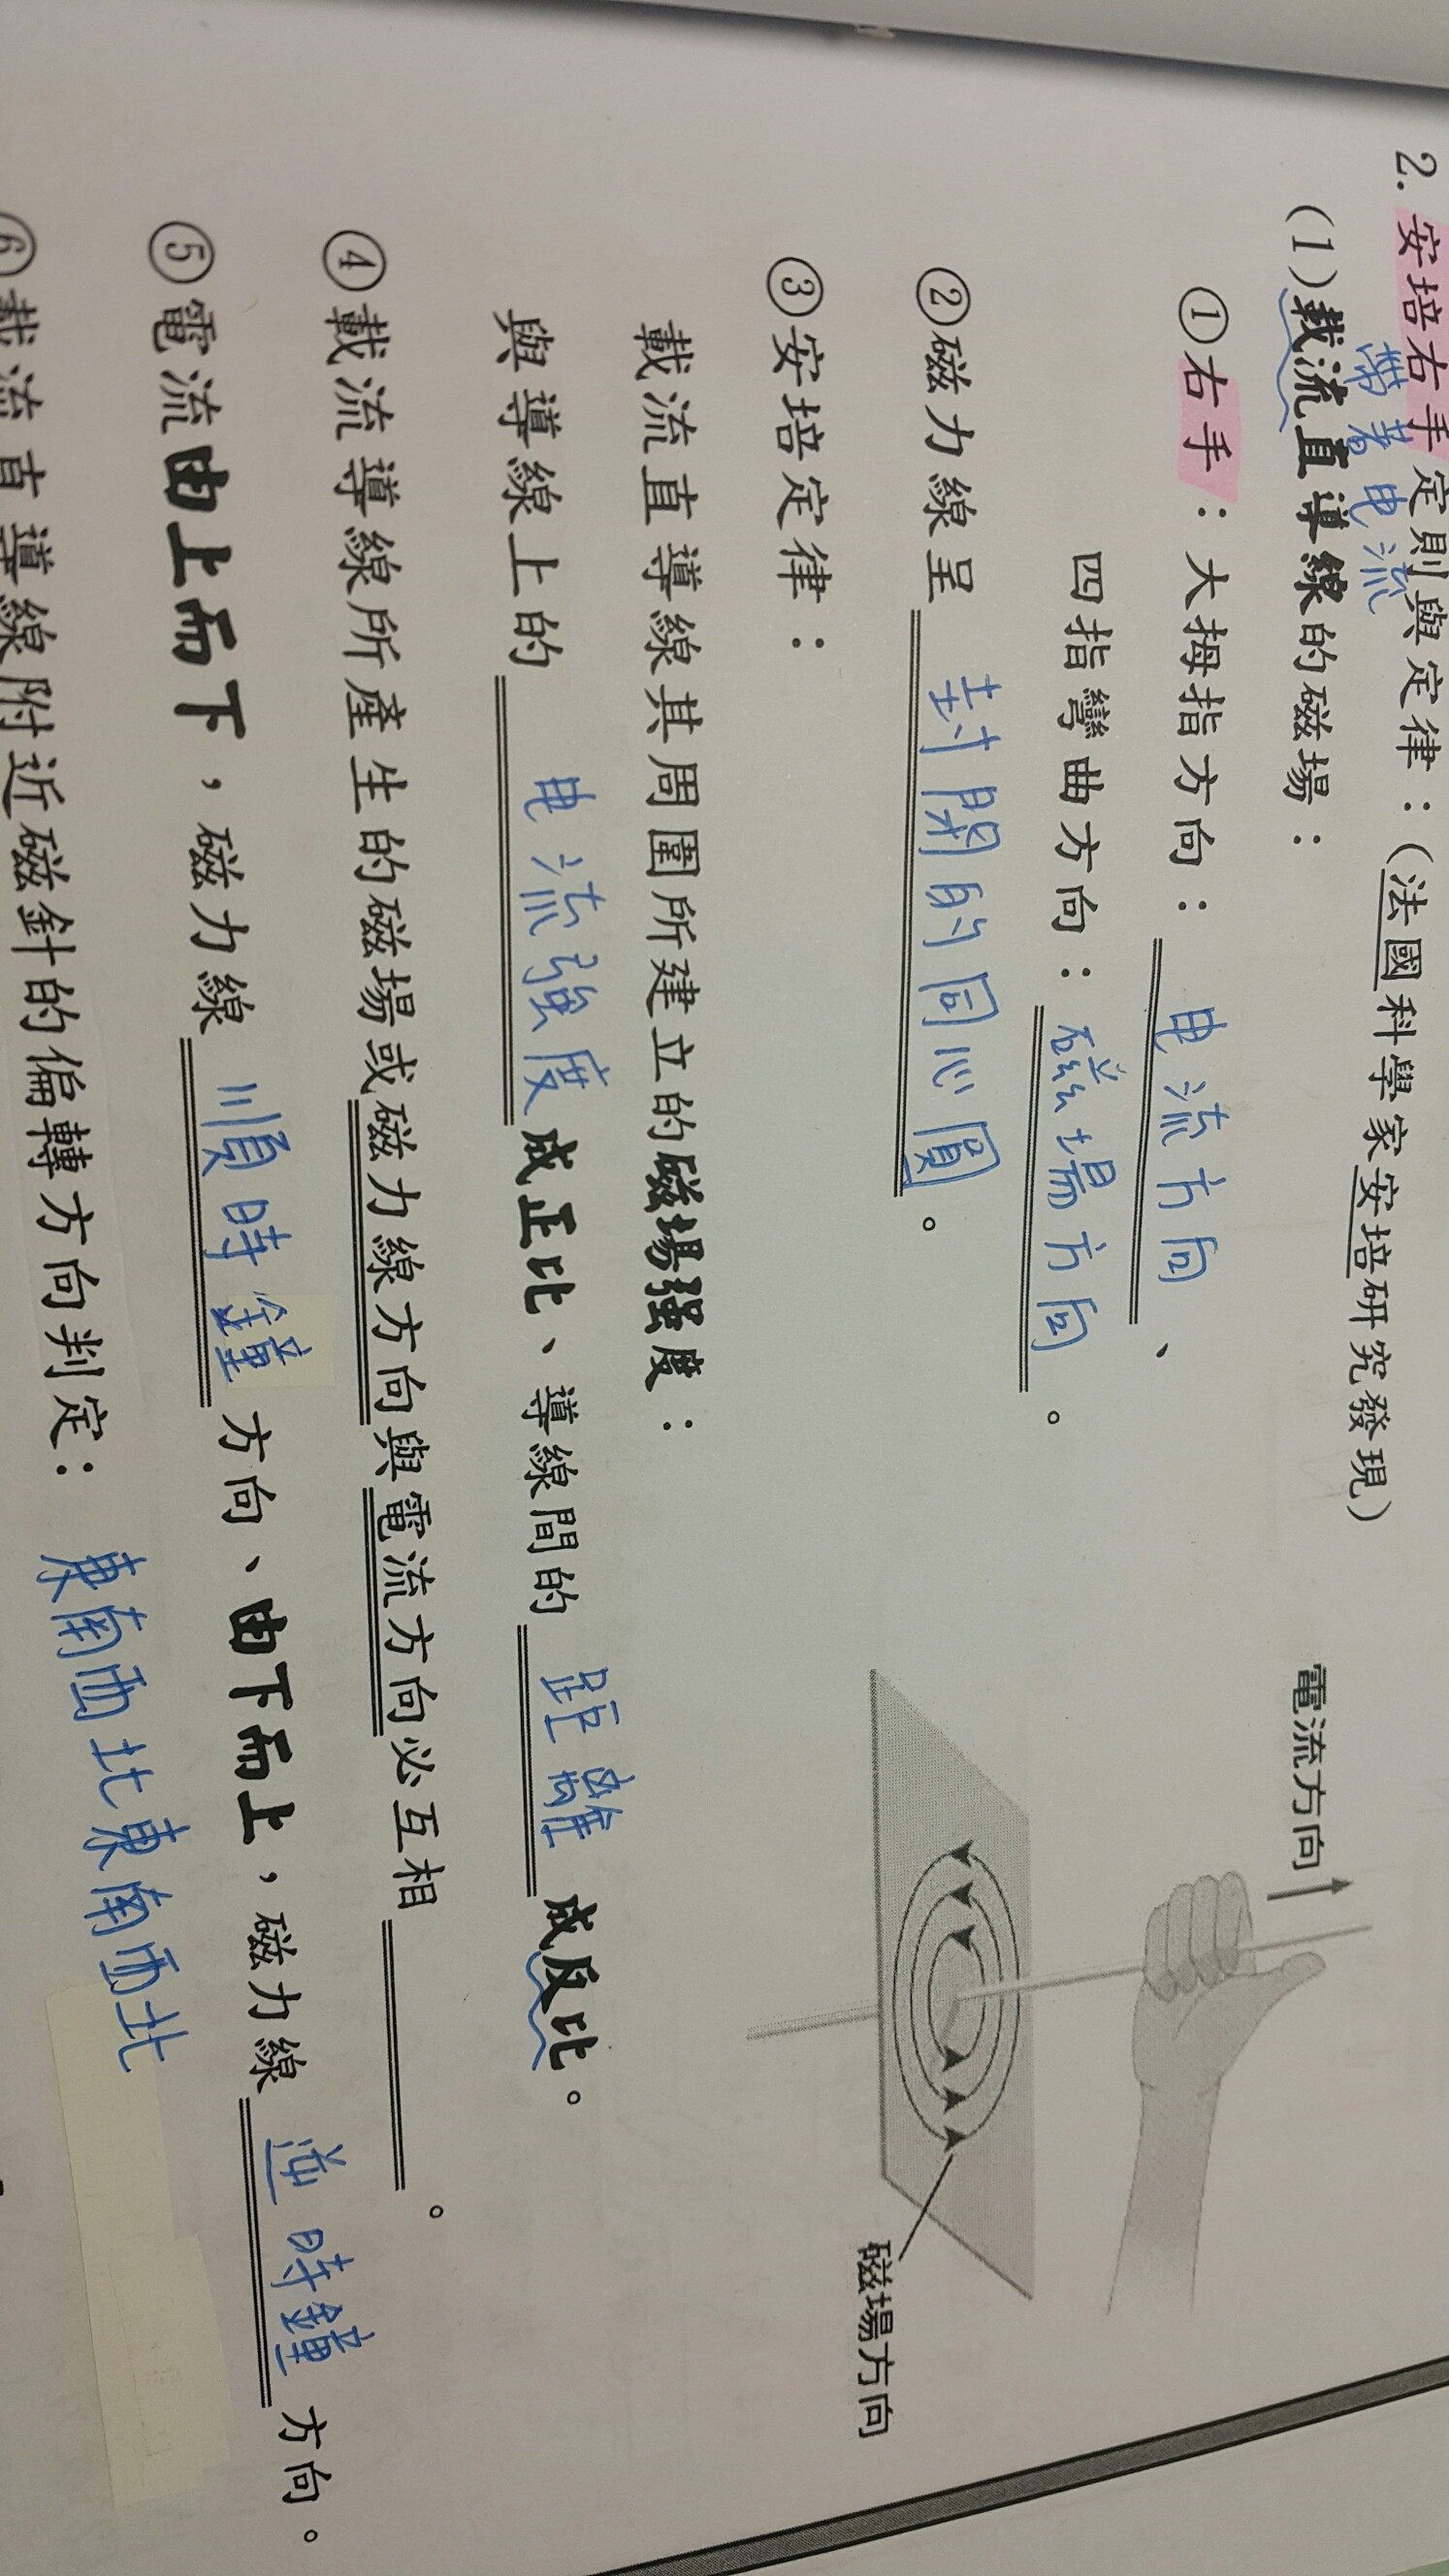 2. 安培右手定則與定律：（法國科學家安培研究發現）
帶著电流
(1)載流直導線的磁場：
①右手：大拇指方向：电流方向、
四指彎曲方向：磁場方向。
②磁力線呈封閉的同心圓。
③安培定律：
載流直導線其周圍所建立的磁場強度：
與導線上的电流強度成正比、導線間的距離成反比。
④載流導線所產生的磁場或磁力線方向與電流方向必互相。
⑤電流由上而下，磁力線順時鐘方向、由下而上，磁力線逆時鐘方向。
⑥載流直導線附近磁針的偏轉方向判定：東南西北東南西北
電流方向
磁場方向